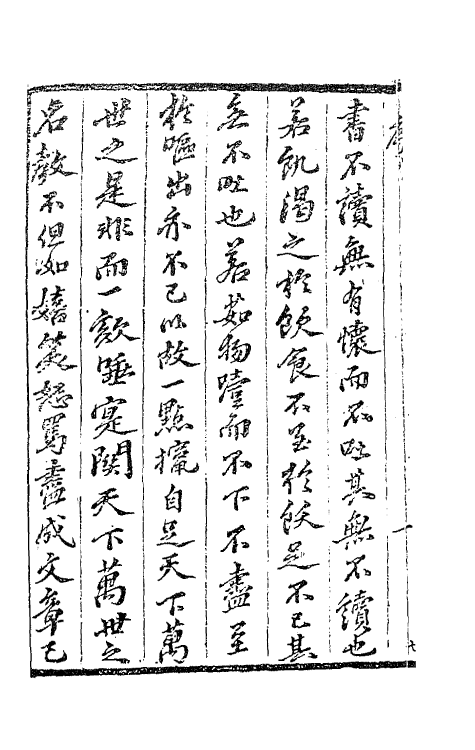 書不讀無有懷而不吐其無不讀也
若飢渴之於飲食不至於飫足不已其
無不吐也若茹物噎而不下不盡至
於嘔出亦不已以故一點攛自足天下萬
世之是非而一欬唾寔關天下萬世之
名教不但如嬉笑怒罵盡成文章已